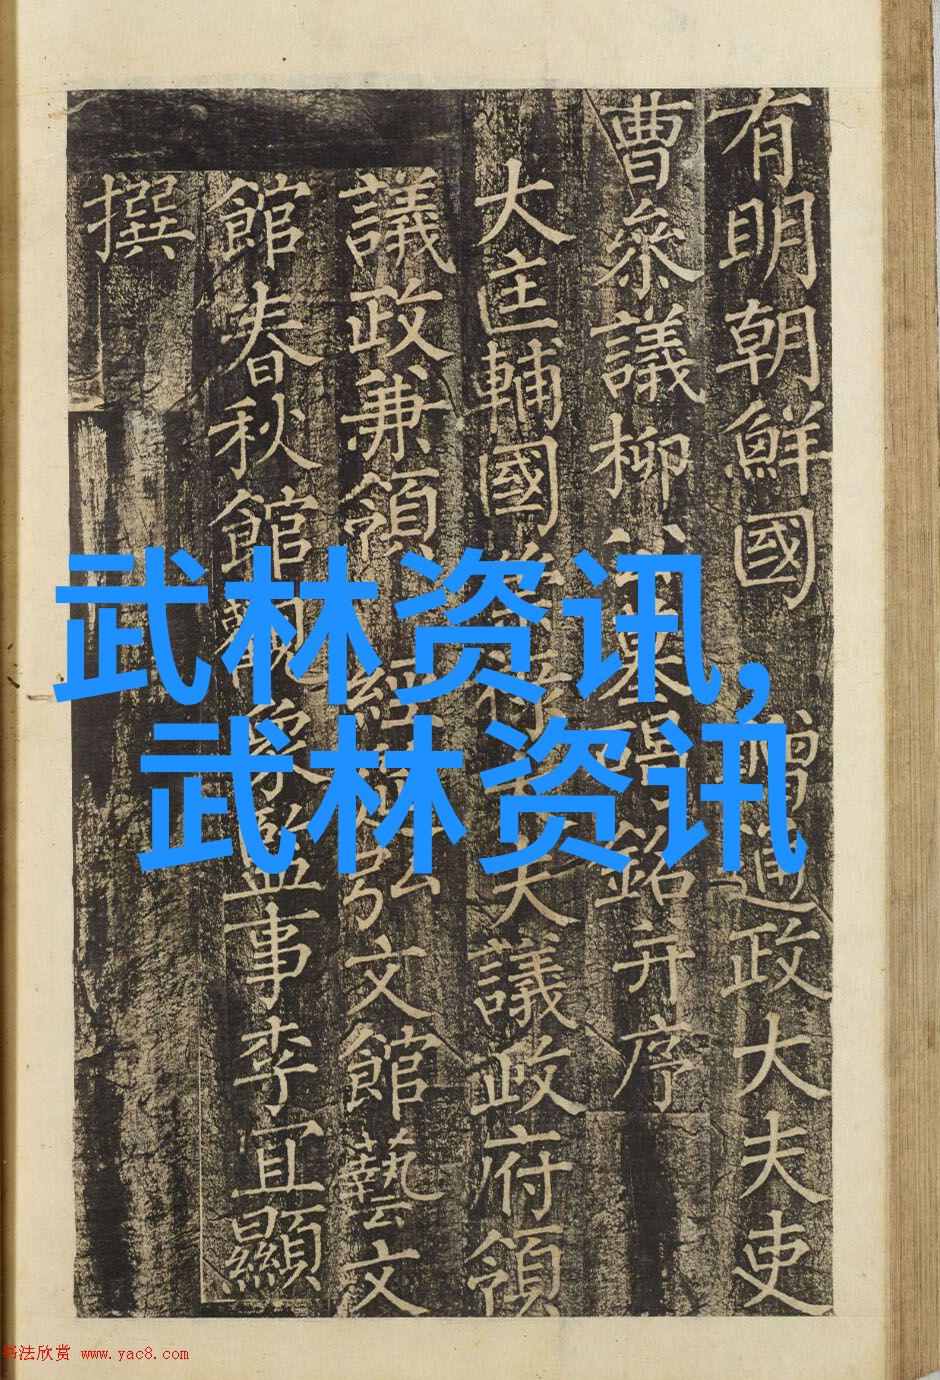 有明朝鮮國 贈通政大夫吏
曹參議柳公墓碣銘并序
大匡輔國崇祿大夫議政府領
議政兼領經弘文館藝文
館春秋館觀象監事李宜顯
撰
武林资讯,
武林资讯
书法欣赏 www.yac8.com